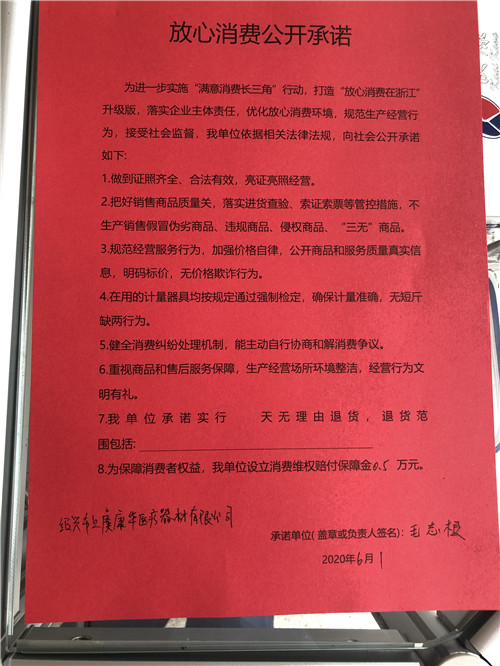 放心消费公开承诺
为进一步实施“满意消费长三角”行动，打造“放心消费在浙江”
升级版，落实企业主体责任，优化放心消费环境，规范生产经营行
为，接受社会监督，我单位依据相关法律法规，向社会公开承诺
如下:
1.做到证照齐全、合法有效，亮证亮照经营。
2.把好销售商品质量关，落实进货查验、索证索票等管控措施，不
生产销售假冒伪劣商品、违规商品、侵权商品、“三无”商品。
3.规范经营服务行为，加强价格自律，公开商品和服务质量真实信
息，明码标价，无价格欺诈行为。
4.在用的计量器具均按规定通过强制检定，确保计量准确，无短斤
缺两行为。
5.健全消费纠纷处理机制，能主动自行协商和解消费争议。
6.重视商品和售后服务保障，生产经营场所环境整洁，经营行为文
明有礼。
7.我单位承诺实行 天无理由退货，退货范
围包括:
8.为保障消费者权益，我单位设立消费维权赔付保障金0.5万元。
绍兴市上虞康华医疗器材有限公司
承诺单位(盖章或负责人签名): 毛志
2020年6月1